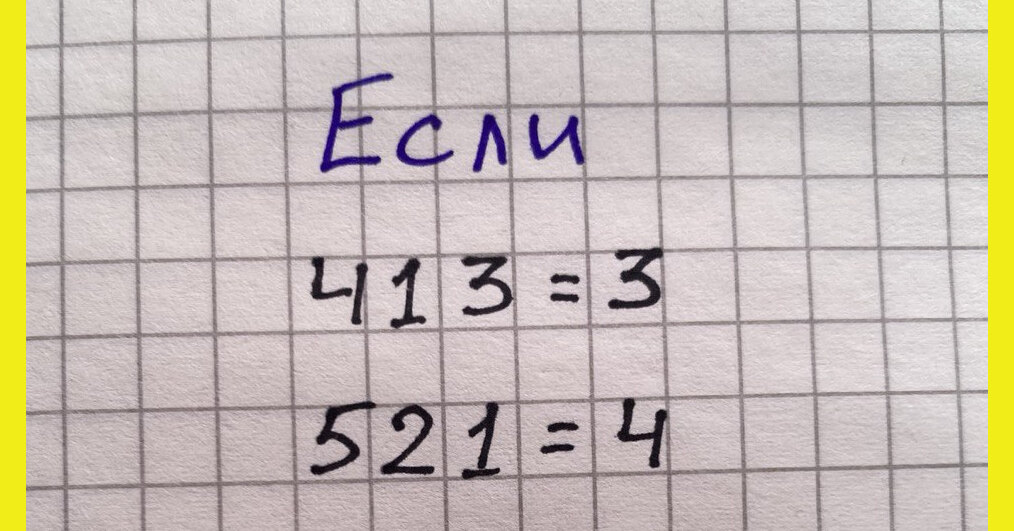 Если
413 = 3
521 = 4